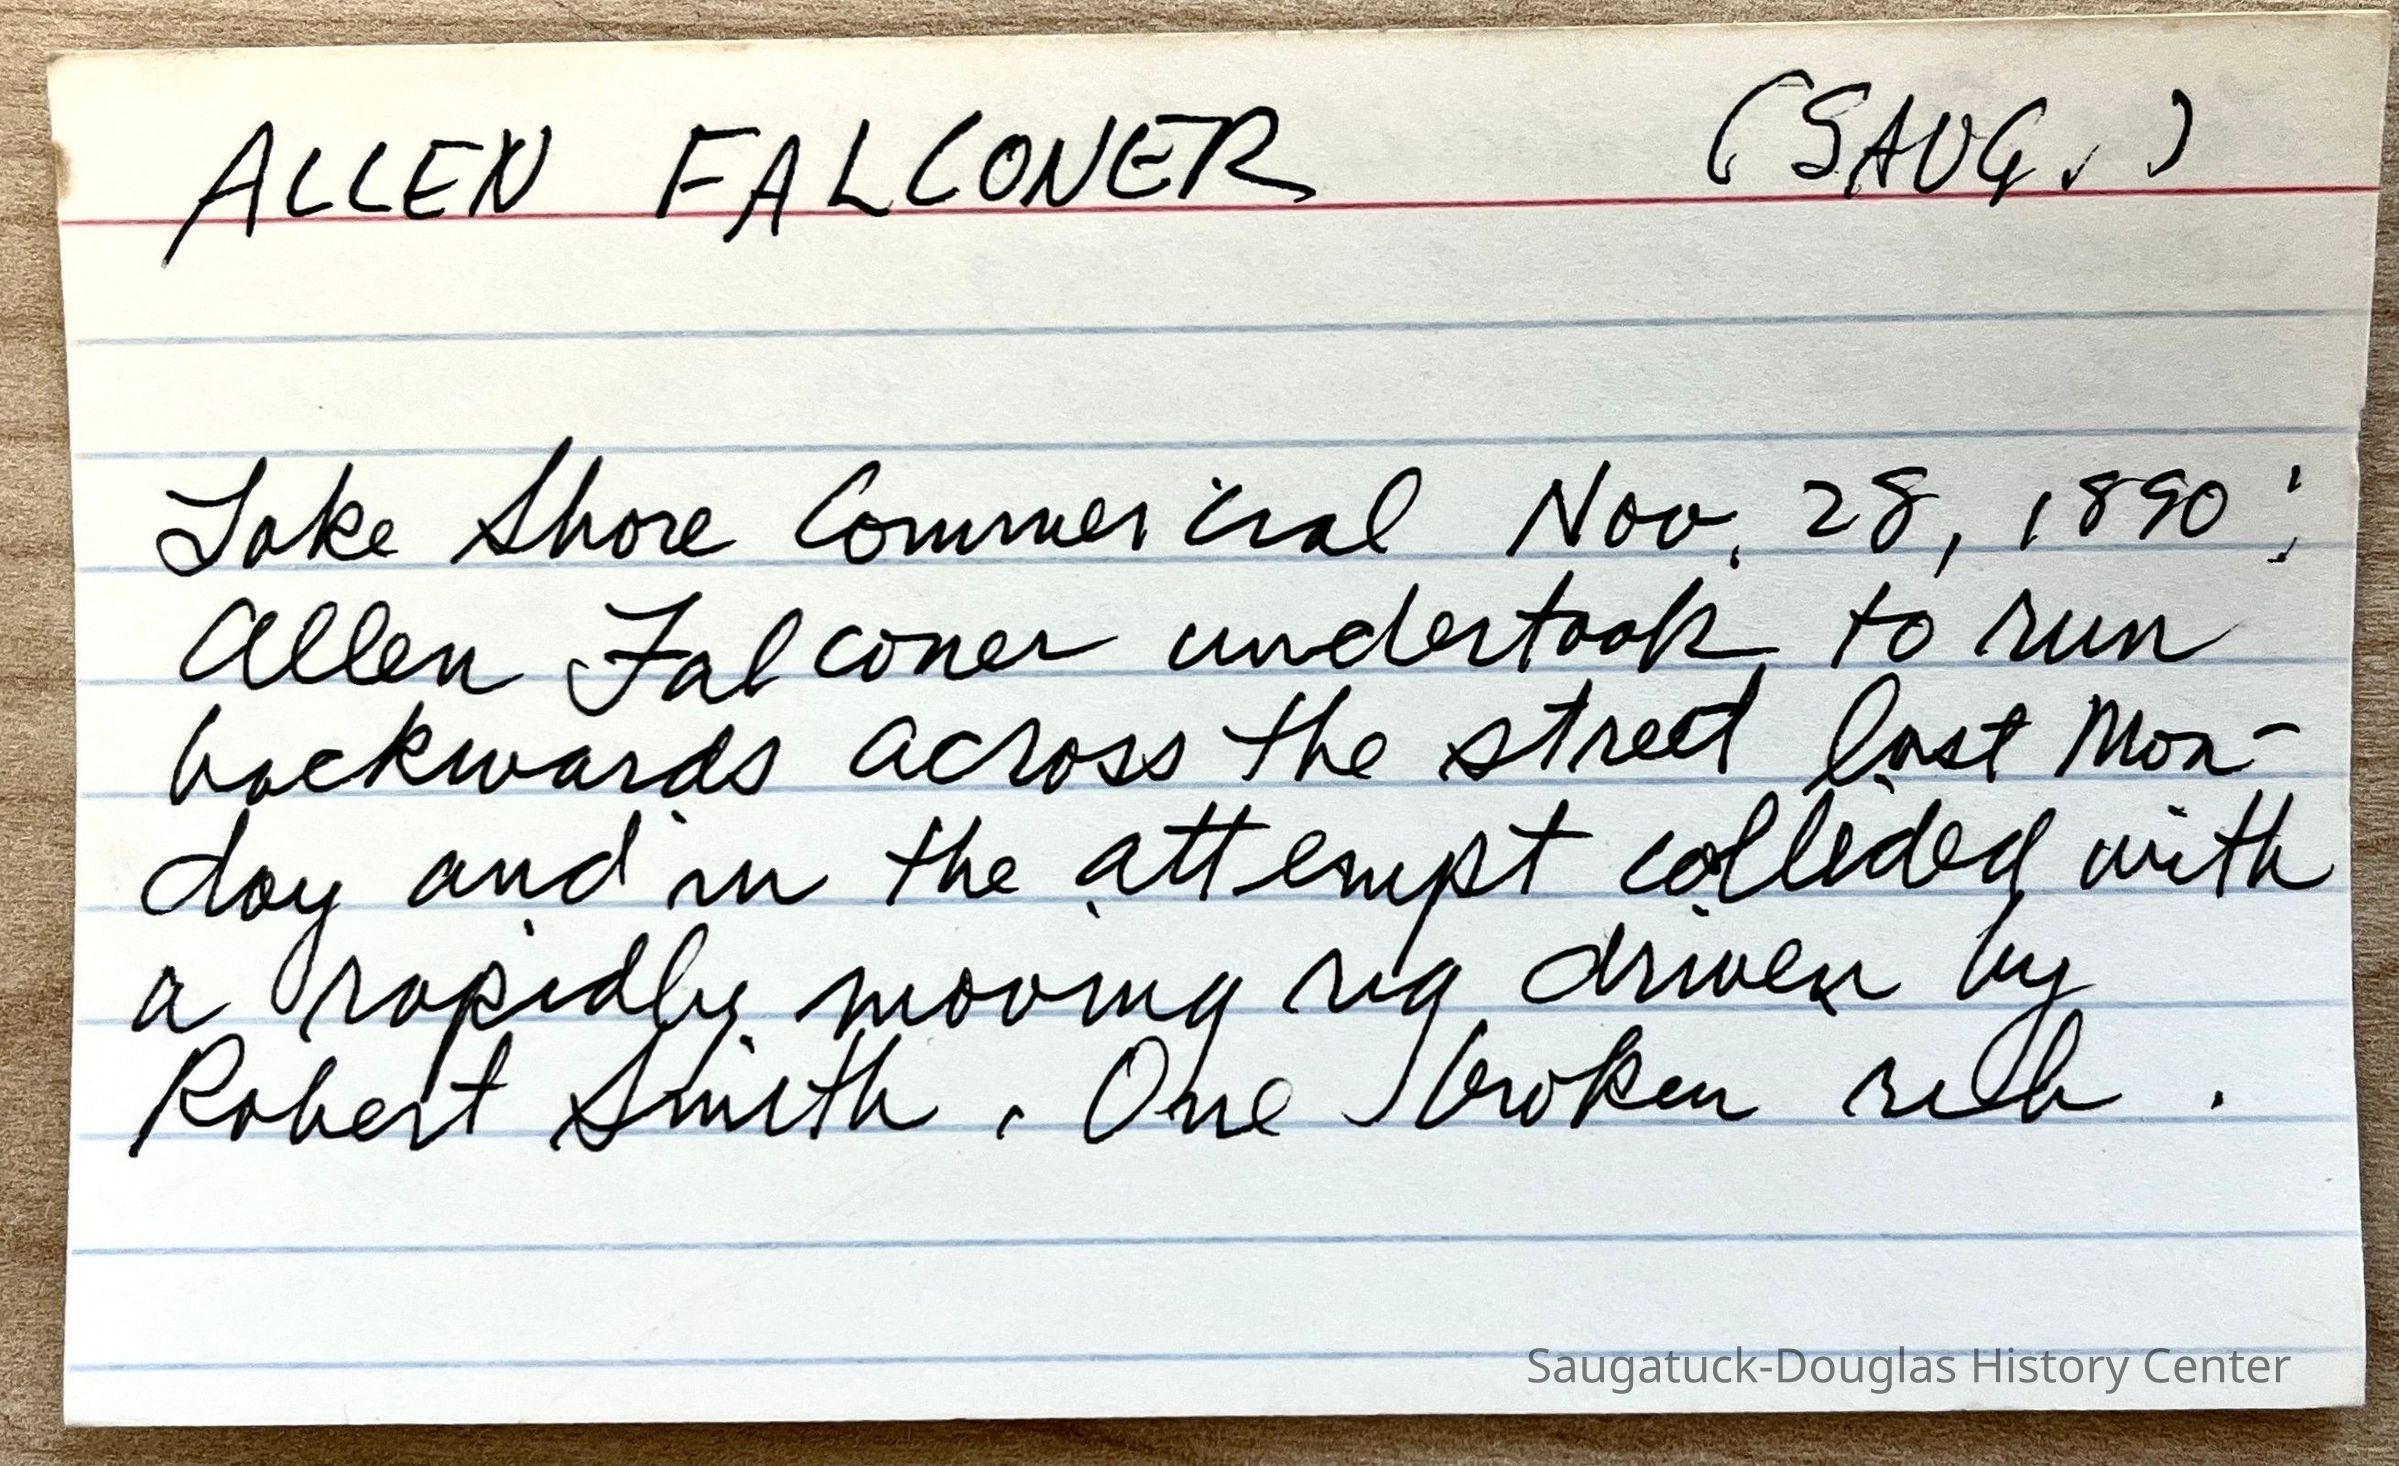 ALLEN FALCONER (SAUG.)
Lake Shore Commercial Nov. 28, 1890:
Allen Falconer undertook to run
backwards across the street last Mon-
day and in the attempt collided with
a rapidly moving rig driven by
Robert Smith. One broken rib.
Saugatuck-Douglas History Center